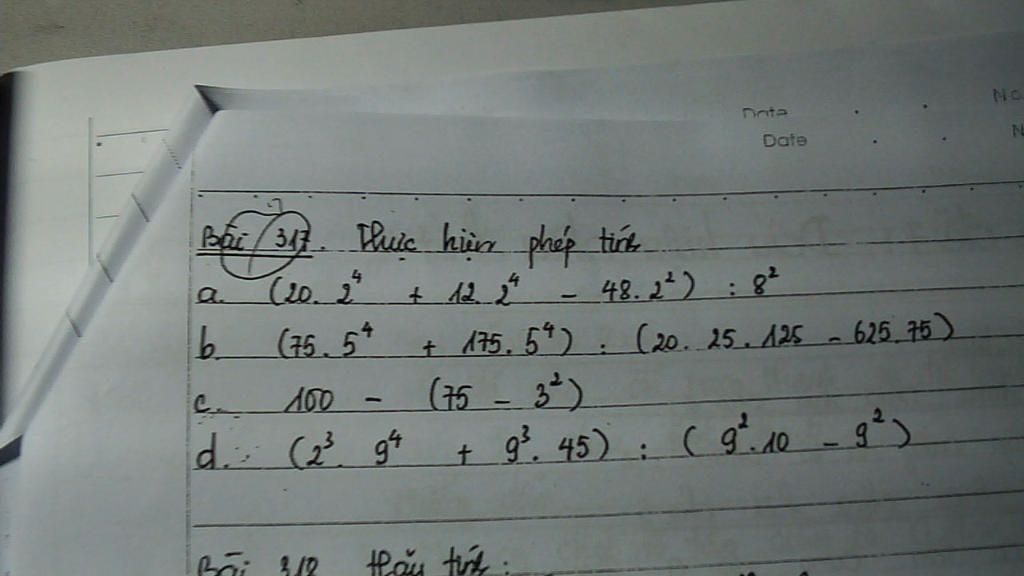 Date . . No
Date . . N
Bài 317. Thực hiện phép tính
a. (20. 2⁴ + 12. 2⁴ - 48. 2²) : 8²
b. (75. 5⁴ + 175. 5⁴) : (20. 25. 125 - 625. 75)
c. 100 - (75 - 3²)
d. (2³. 9⁴ + 9³. 45) : (9². 10 - 9²)
Bài 318 tính :